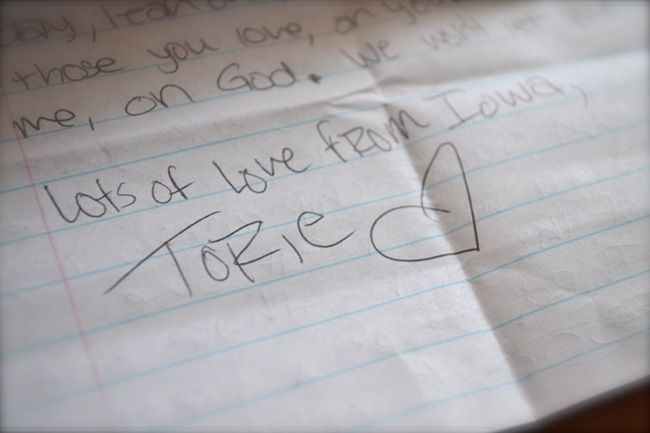 day, lean on
those you love, on you
me, on God. We will let you
Lots of love from Iowa,
Torie